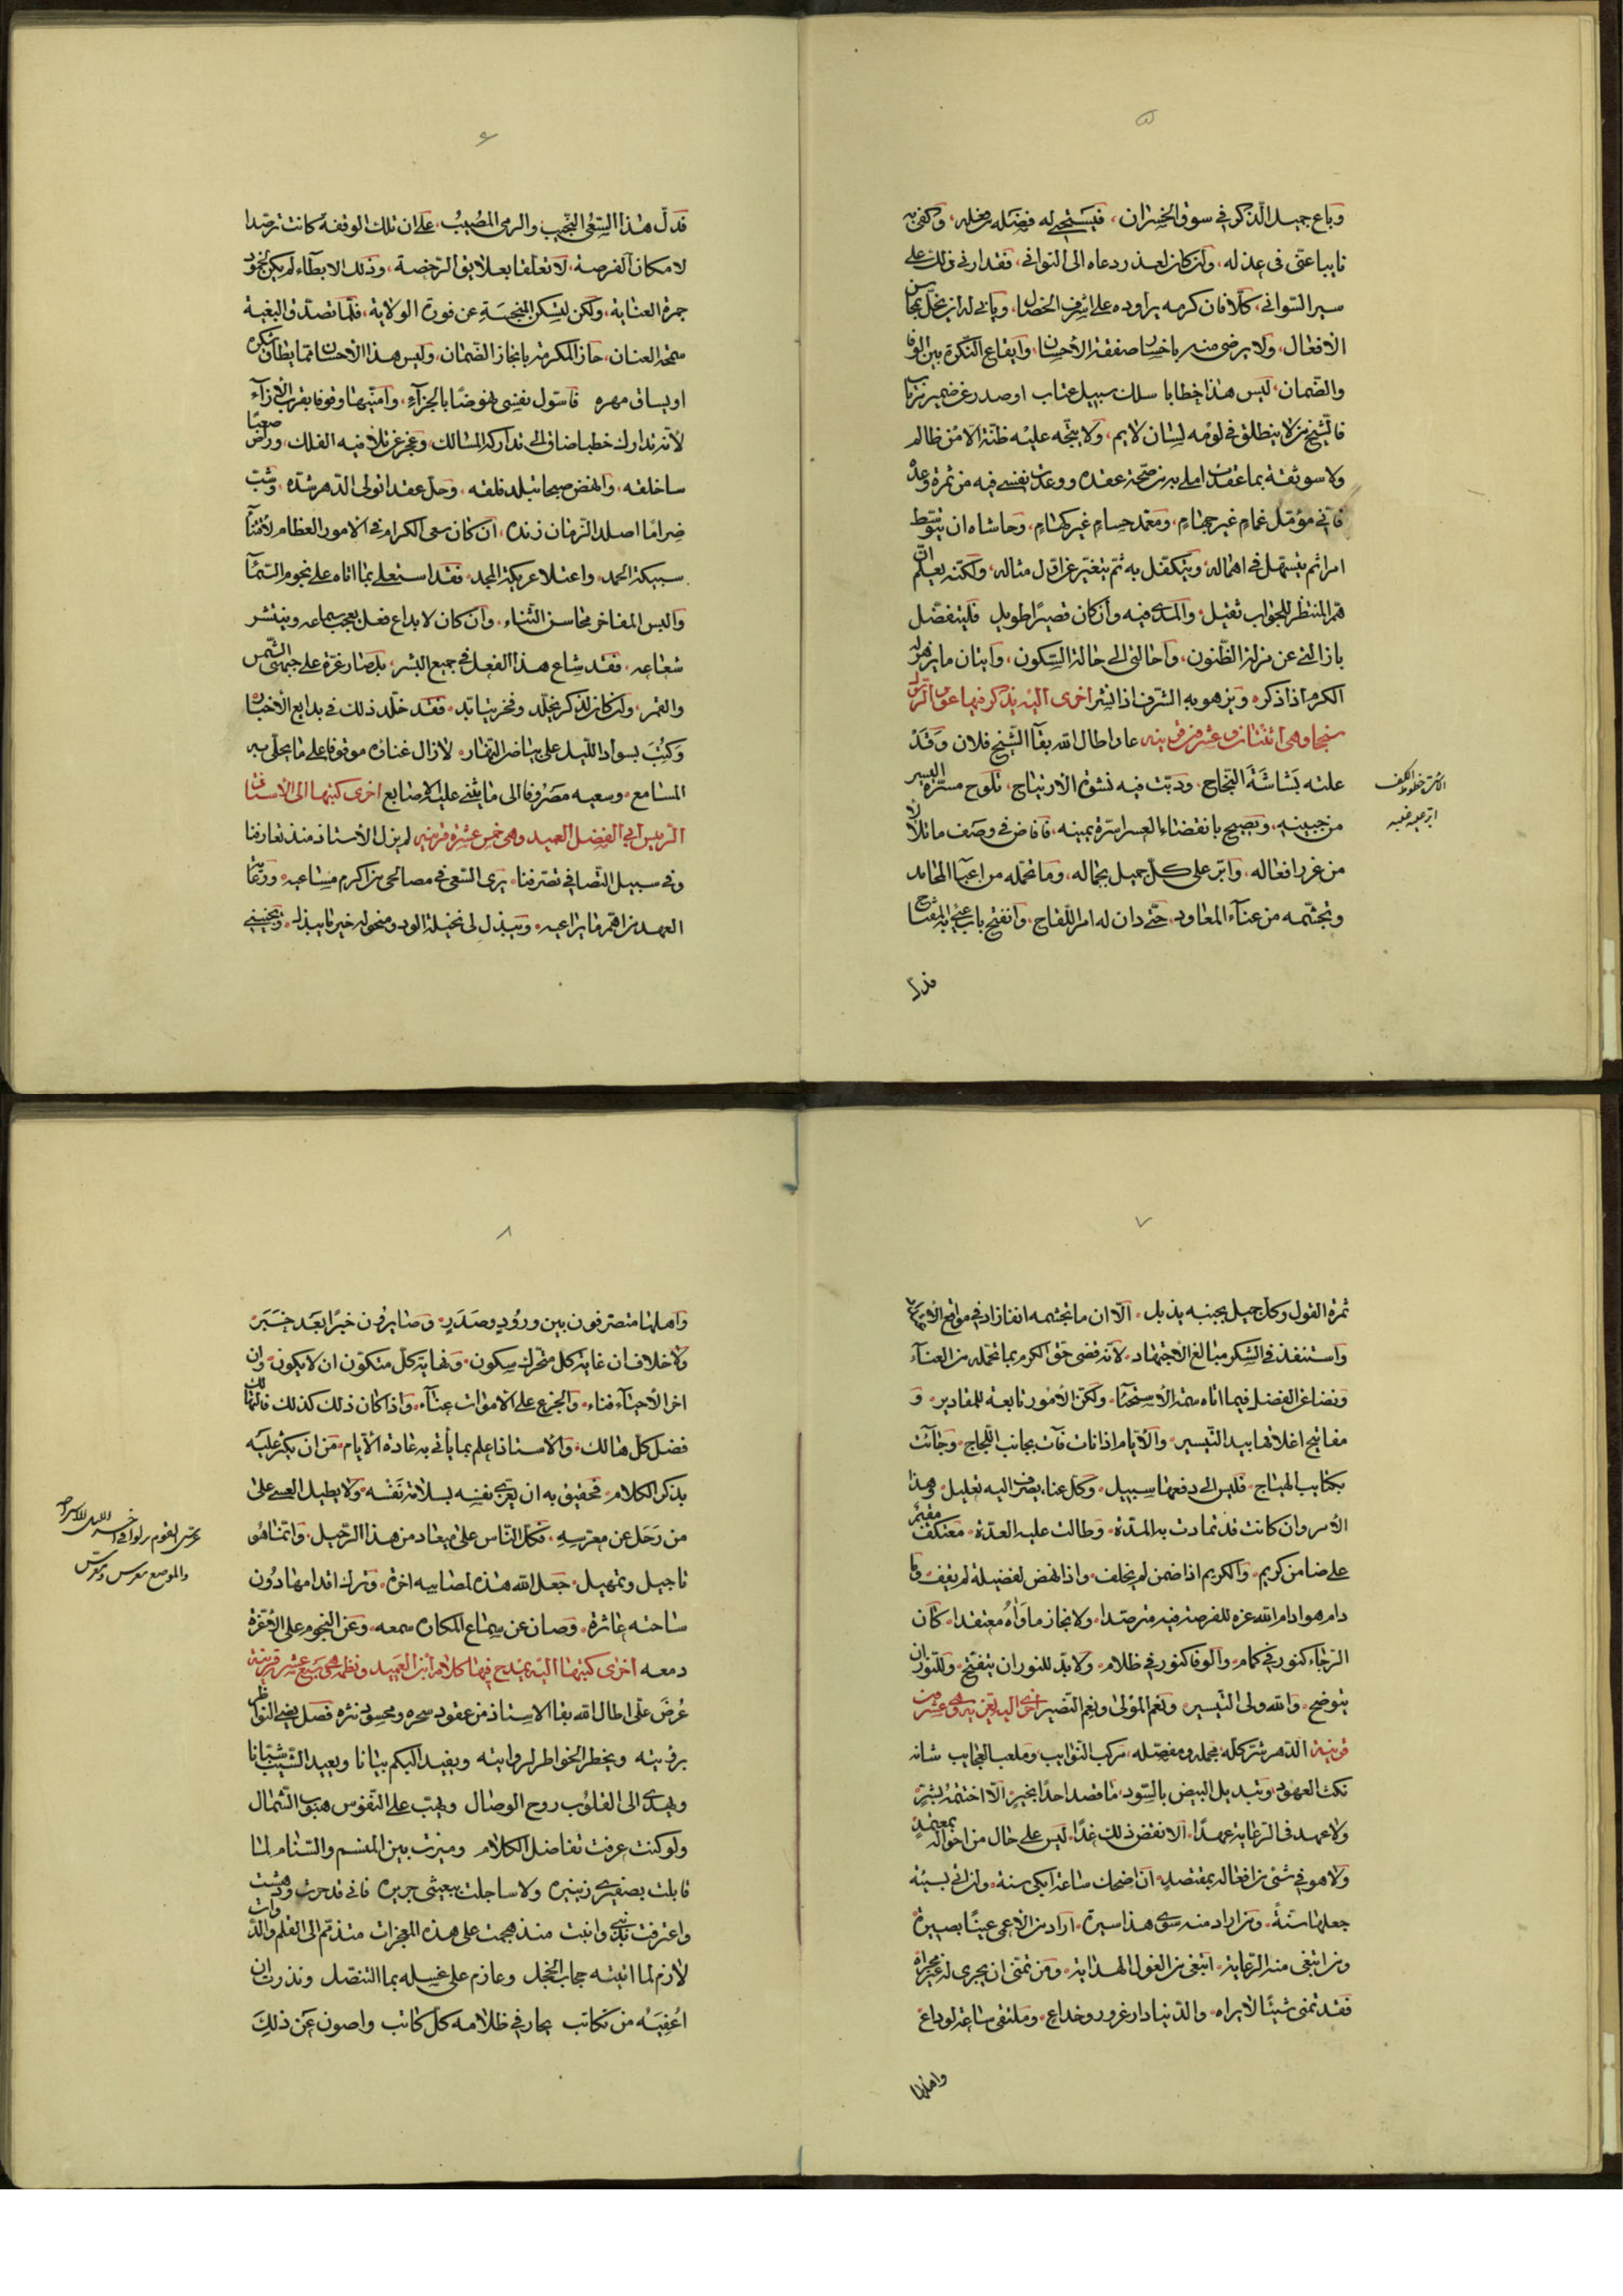 ۵
وباع جميل الذكر في سوق الخسران، فيستحيى له فضله من فعله، وكفى به
نايبا عنى فى عذله، وان كان لعذر دعاه الى التوانى، فقد ارنى ذلك على
سير السوانى، كلا فان كرمه يراوده على اشرف الخصال، ويابى له ان يخل بمحاسن
الافعال، ولا يرضى منه باخسار صفقة الاحسان، وايقاع النكرة بين الوفا
والضمان، ليس هذا خطابا سلك سبيل عتاب او صدر عن ضمير مرتاب
فالشيخ من لا ينطلق في لومه لسان لايم، ولا يتجه عليه ظنة الامن ظالم
ولا سو ثقة بما عقدت املى به من صحة عقده ووعدت نفسى فيه من ثمرة وعده
فانى مؤمل غمام غير جهام، ومعتمد حسام غير كهام، وحاشاه ان يتوسط
امرا ثم يتسهل في اهماله، ويتكفل به ثم يتغير عن اول مثاله، ولكنه يعلم ان
هم المنتظر للجواب ثقيل، والمدى فيه وان كان قصيرا طويل فليتفضل
بازالتى عن منزلة الظنون، واحالتى الى حالة السكون، واتيان ما يزهر له
الكرم اذا ذكره ويزهو به الشرف اذا نشر اخرى اليه يذكر فيها عن الرسل
سنجا وهى اثنتان وعشرون قرينه عاد اطال الله بقآ الشيخ فلان وقد
علته بشاشة النجاح، ودبت فيه نشوة الارتياح، تلوح مسترة اليسر
من جبينه، ويصيح بانقضاء العسر اسرة يمينه، فافاض في وصف ما تلألأ
من غرر افعاله، وابر على كل جميل بجماله، وما تحمله من اعبآ المحامد
وتجشمه من عنآء المعاود، حتى دان له امر اللقاح، وانفتح باب عنى به المفتاح
فدل
الاسرة خطوط الكف
ابر عليه غلبه
۶
قد دل هذا السعى النجيب والرمى المصيب، على ان تلك الوقفة كانت ترصدا
لامكان الفرصة، لا تعلقا بعلايق الرخصة، وذلك الابطآء لم يكن لخمود
جمرة العناية، ولكن ليسكن المنجسة عن فورة الولاية، فلما تصدق البغية
منحة العنان، حاز المكرمة بانجاز الضمان، وليس هذا الاحسان مما يطاق شكره
او يساق مهره فاسول نفسى نهوضا بالجزآء، وامنيها وقوفا بقرب الازآء
لانه تدارك خطبا ضاق الى تداركه المسالك، وعجز عن تلافيه الفلك، وراض صعبا
سا خلقه، وانهض صبحا تبلد فلقه، وحل عقدا تولى الدهر شده، وشب
ضراما اصلد الزمان زنده، ان كان سعى الكرام في الامور العظام لاقتنآء
سبيكة الحمد، واعتلا عريكة المجد، فقد استعلى بما اتاه على نجوم السمآء
والبس المفاخر محاسن الثناء، وان كان لابداع فعل يعجب سماعه وينتشر
شعاعه، فقد شاع هذا الفعل في جميع البشر، بل صار غرة على جبهتى الشمس
والقمر، وان كان لذكر يخلد وفخر يتابد، فقد خلد ذلك في بدايع الاخبار
وكتب بسواد الليل على بياض النهار، لا زال غناؤه موقوفا على ما يحلى به
المسامع، وسعيه مصروفا الى ما يثنى عليه الاصابع اخرى كتبها الى الاستاذ
الرئيس ابى الفضل العميد وهى خمس عشرة قرينه لم يزل الاستاذ منذ تعارفنا
وفى سبيل التصافي تصرفنا، يرى السعى في مصالحى من اكرم مساعيه، ورعاية
العهد من اهم ما يراعيه، ويبذل لى نخيلة الود ومنخوله خير ما يبذله، ويجنينى
۷
ثمرة القول وكل جميل يجنيه يذبل، الا ان ما تجشمه انفا زاد في مواقع الاعتداد
واستنفد فى الشكر مبالغ الاجتهاد، لانه قضى حق الكرم بما تحمله من العنآء
ونضا عن الفضل فيما اتاه سمة الاستحيا، ولكن الامور تابعة للمقادير، و
مفاتيح اغلاقها بيد التيسير، والايام اذا نات فآت بجانب اللجاج، وجآئت
بكتايب الهياج، فليس الى دفعها سبيل، وكل عناء يضرف اليه تعليل، وهذا
الامر وان كانت قد تمادت به المدة، وطالت عليه العدة، معتكف مقيم
على ضامن كريم، والكريم اذا ضمن لم يخلف، واذا نهض لفضيلة لم يقف، وما
دام هو ادام الله عزه للفرصة فيه مترصدا، ولانجاز ما وآه معتقدا، كان
الرجاء كنور في كمام، والوفا كنور في ظلام، ولا بد للنور ان يتفتح، وللنور ان
يتوضح، والله ولى التيسير ونعم المولى ونعم النصير اخرى اليه تعزيه وهى عشرون
قرينة الدهر شر كله مجمله ومفصله، مركب النوايب، وملعب العجايب شانه
نكث العهود، وتبديل البيض بالسود، ما قصد احدا بخير، الا اختتمه بشر،
ولا عهد فى الرعاية عهدا، الا نقض ذلك غدا، ليس على حال من احواله بمعتمد
ولا هو في شئ من افعاله بمقتصد، ان اضحك ساعة ابكى سنة، وان اتى بسيئة
جعلها سنة، ومن اراد منه سوى هذا سيرة، اراد من الاعمى عينا بصيرة
ومن ابتغى منه الرعاية، ابتغى من الغول الهداية، ومن تمنى ان يجرى له غير مجراه
فقد تمنى شيئا لا يراه، والدنيا دار غرور وخداع، وملتقى ساعة لوداع
واهلها
۸
واهلها متصرفون بين ورود وصدر، وصايرون خبرا بعد خبر،
ولا خلاف ان غاية كل متحرك سكون، ونهاية كل متكون ان لا يكون، وان
اخر الاحيآء فناء، والجزع على الاموات عنآء، واذا كان ذلك كذلك فالتهالك
فضل كل هالك، والاستاذ اعلم بما ياتى به عادة الايام، من ان يكثر عليه
بذكر الكلام، فحقيق به ان يعزى نفسه بسلامة نفسه، ولا يطيل العسى على
من رحل عن معرسه، فكل الناس على ميعاد من هذا الرحيل، وانما هو
تاجيل وتمهيل، جعل الله هذه المصايبه اخره، وترك اقدامها دون
ساحته عاثرة، وصان عن سماع المكاره سمعه، وعن النجوم على الاعزة
دمعه اخرى كتبها اليه يمدح فيها كلام ابن العميد ونظمه وهى سبع عشر قرينة
عرض على اطال الله بقا الاستاذ من عقود سحره ومحسود نثره فصل يضئ النواظر
برؤيته ويخطر الخواطر لروايته ويفيد البكم بيانا ويعيد الشيب شبانا
ويهدى الى القلوب روح الوصال ويهب على النفوس هبوب الشمال
ولو كنت عرفت تفاضل الكلام وميزت بين المنسم والسنام لما
قابلت بصفيرى زئيره ولا ساجلت ببعيثى جريره فانى قد حرت ودهشت
واعترفت بذنبى وانبت منذ هجمت على هذه المعجزات متذمم الى القلم والدوات
لازم لما اتيته حجاب الخجل وعازم على غسله بما التنصل ونذرت ان
اعفيه من تكاتب يحار في ظلامه كل كاتب واصون عن ذلك
عرس القوم نزلوا فى اخر الليل للاستراحة
والموضع معرس ومعرس